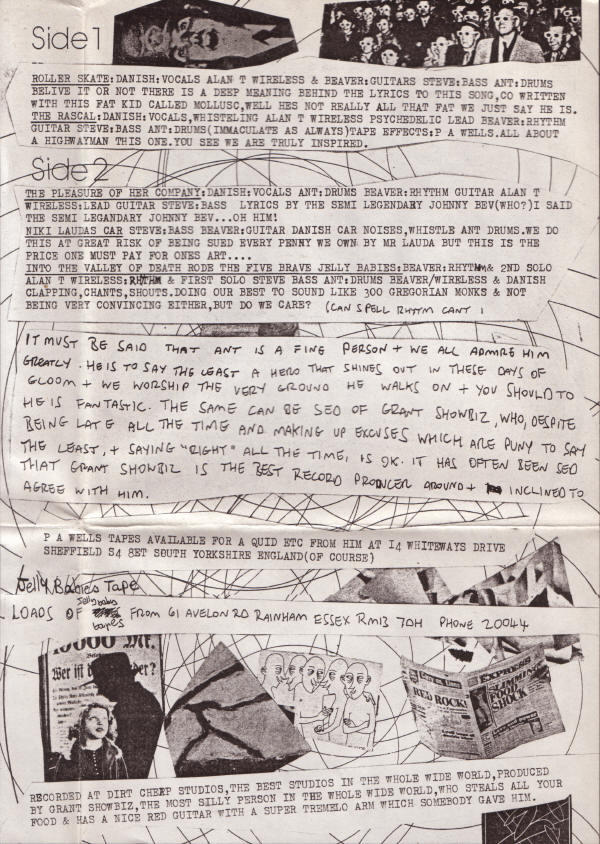 Side 1
ROLLER SKATE:DANISH:VOCALS ALAN T WIRELESS & BEAVER:GUITARS STEVE:BASS ANT:DRUMS
BELIVE IT OR NOT THERE IS A DEEP MEANING BEHIND THE LYRICS TO THIS SONG,CO WRITTEN
WITH THIS FAT KID CALLED MOLLUSC,WELL HES NOT REALLY ALL THAT FAT WE JUST SAY HE IS.
THE RASCAL:DANISH:VOCALS,WHISTELING ALAN T WIRELESS PSYCHEDELIC LEAD BEAVER:RHYTHM
GUITAR STEVE:BASS ANT:DRUMS(IMMACULATE AS ALWAYS)TAPE EFFECTS:P A WELLS.ALL ABOUT
A HIGHWAYMAN THIS ONE.YOU SEE WE ARE TRULY INSPIRED.
Side 2
THE PLEASURE OF HER COMPANY:DANISH:VOCALS ANT:DRUMS BEAVER:RHYTHM GUITAR ALAN T
WIRELESS:LEAD GUITAR STEVE:BASS LYRICS BY THE SEMI LEGENDARY JOHNNY BEV(WHO?)I SAID
THE SEMI LEGANDARY JOHNNY BEV...OH HIM!
NIKI LAUDAS CAR STEVE:BASS BEAVER:GUITAR DANISH CAR NOISES,WHISTLE ANT DRUMS.WE DO
THIS AT GREAT RISK OF BEING SUED EVERY PENNY WE OWN BY MR LAUDA BUT THIS IS THE
PRICE ONE MUST PAY FOR ONES ART....
INTO THE VALLEY OF DEATH RODE THE FIVE BRAVE JELLY BABIES:BEAVER:RHYTHM & 2ND SOLO
ALAN T WIRELESS:RHTHM & FIRST SOLO STEVE BASS ANT:DRUMS BEAVER/WIRELESS & DANISH
CLAPPING,CHANTS,SHOUTS.DOING OUR BEST TO SOUND LIKE 300 GREGORIAN MONKS & NOT
BEING VERY CONVINCING EITHER,BUT DO WE CARE? (CAN SPELL RHYTM CANT I
IT MUST BE SAID THAT ANT IS A FINE PERSON + WE ALL ADMIRE HIM
GREATLY. HE IS TO SAY THE LEAST A HERO THAT SHINES OUT IN THESE DAYS OF
GLOOM + WE WORSHIP THE VERY GROUND HE WALKS ON + YOU SHOULD TO
HE IS FANTASTIC. THE SAME CAN BE SED OF GRANT SHOWBIZ, WHO, DESPITE
BEING LATE ALL THE TIME AND MAKING UP EXCUSES WHICH ARE PUNY TO SAY
THE LEAST, + SAYING "RIGHT" ALL THE TIME, IS OK. IT HAS OFTEN BEEN SED
THAT GRANT SHOWBIZ IS THE BEST RECORD PRODUCER AROUND + INCLINED TO
AGREE WITH HIM.
P A WELLS TAPES AVAILABLE FOR A QUID ETC FROM HIM AT 14 WHITEWAYS DRIVE
SHEFFIELD S4 8ET SOUTH YORKSHIRE ENGLAND(OF COURSE)
Jelly Babies Tape
LOADS OF Jelly baby tapes FROM 61 AVELON RD RAINHAM ESSEX RM13 7DH PHONE 20044
10000 Mk.
Wer ist der?
RED ROCK!
EXPRESS
SLIMMING FOOD SHOCK
RECORDED AT DIRT CHEAP STUDIOS,THE BEST STUDIOS IN THE WHOLE WIDE WORLD,PRODUCED
BY GRANT SHOWBIZ,THE MOST SILLY PERSON IN THE WHOLE WIDE WORLD,WHO STEALS ALL YOUR
FOOD & HAS A NICE RED GUITAR WITH A SUPER TREMELO ARM WHICH SOMEBODY GAVE HIM.